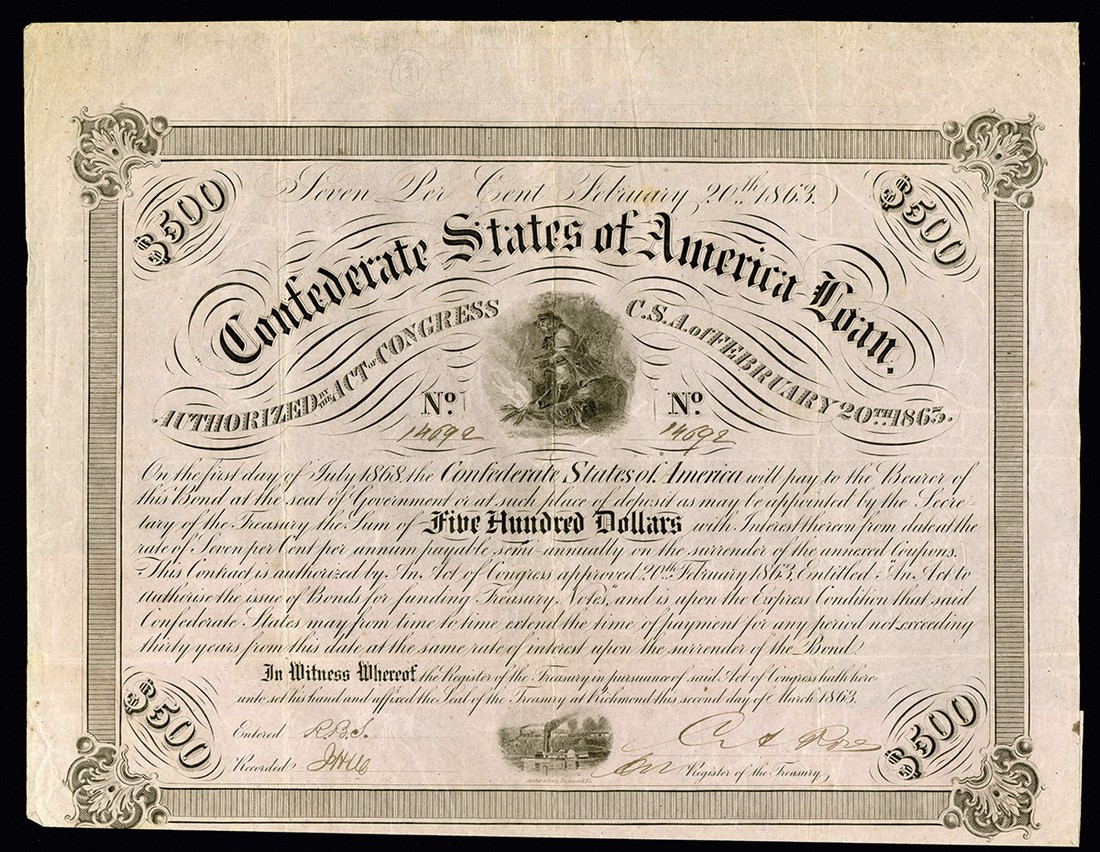 Seven Per Cent February 20th. 1863.
$500
$500
Confederate States of America Loan.
AUTHORIZED BY THE ACT OF CONGRESS C.S.A. of FEBRUARY 20TH. 1863.
No. No.
14692 14692
On the first day of July 1868, the Confederate States of America will pay to the Bearer of
this Bond at the seat of Government or at such place of deposit as may be appointed by the Secre-
tary of the Treasury the Sum of Five Hundred Dollars with Interest thereon from date at the
rate of Seven per Cent per annum payable semi-annually on the surrender of the annexed Coupons.
This Contract is authorized by An Act of Congress approved 20th. February 1863, Entitled "An Act to
authorise the issue of Bonds for funding Treasury Notes," and is upon the Express Condition that said
Confederate States may from time to time extend the time of payment for any period not exceeding
thirty years from this date at the same rate of interest upon the surrender of the Bond.
In Witness Whereof the Register of the Treasury in pursuance of said Act of Congress hath here-
unto set his hand and affixed the Seal of the Treasury at Richmond this second day of March 1863.
$500
$500
Entered R.B.S.
C A Rose
Recorded
Register of the Treasury